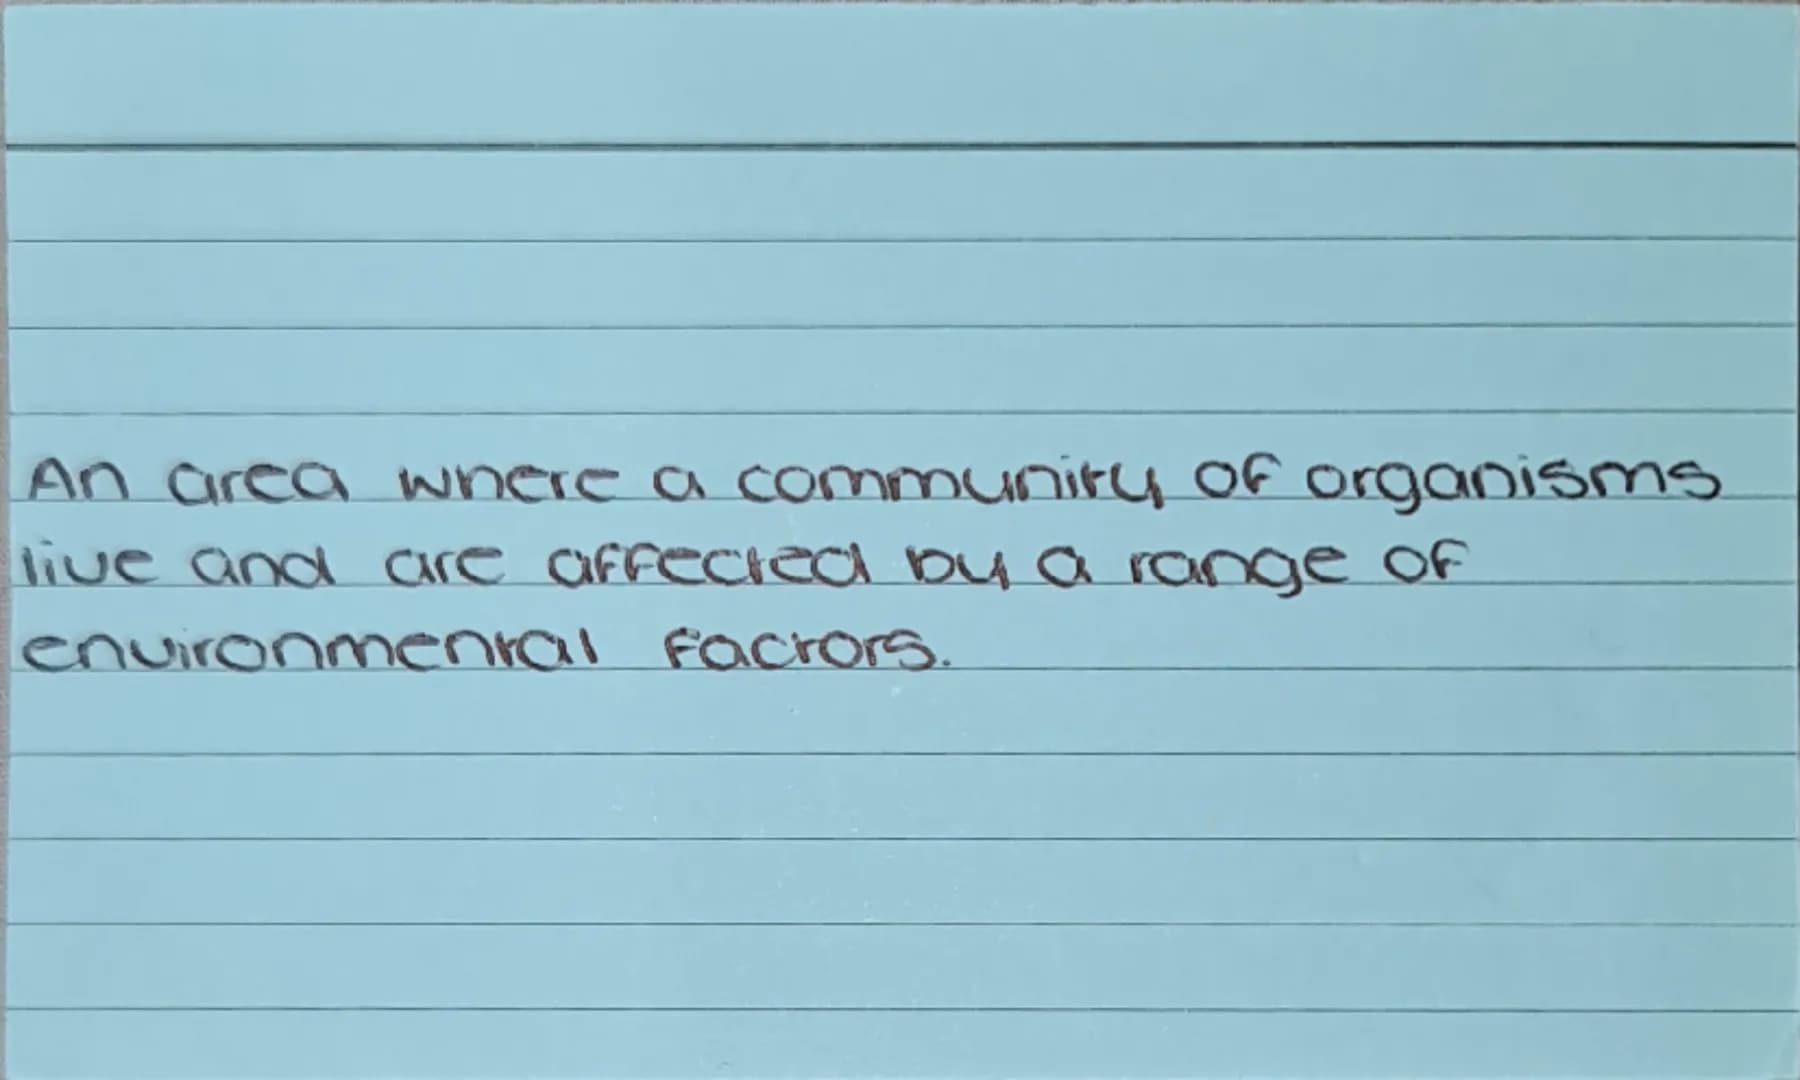 An area where a community of organisms
live and are affected by a range of
environmental factors.